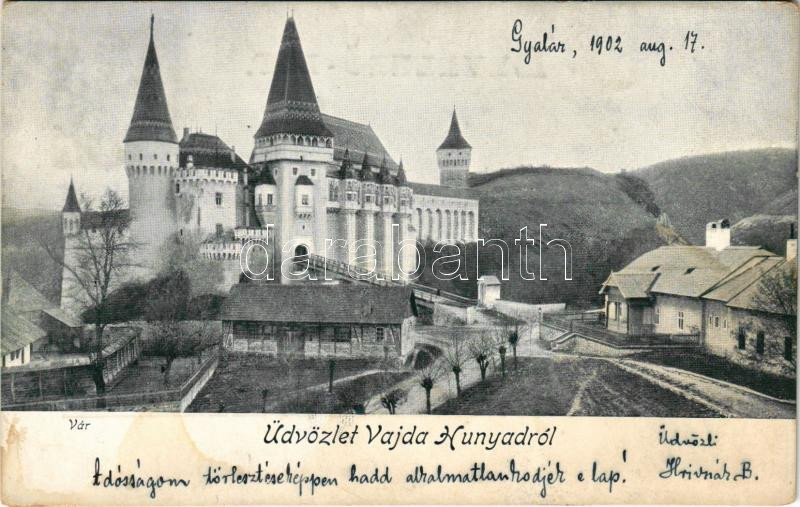 Gyalár, 1902 aug. 17.
darabanth
Vár
Üdvözlet Vajda Hunyadról
Üdvözli
Adósságom törlesztéseképpen hadd alkalmatlankodjék e lap!
Hrivnák B.